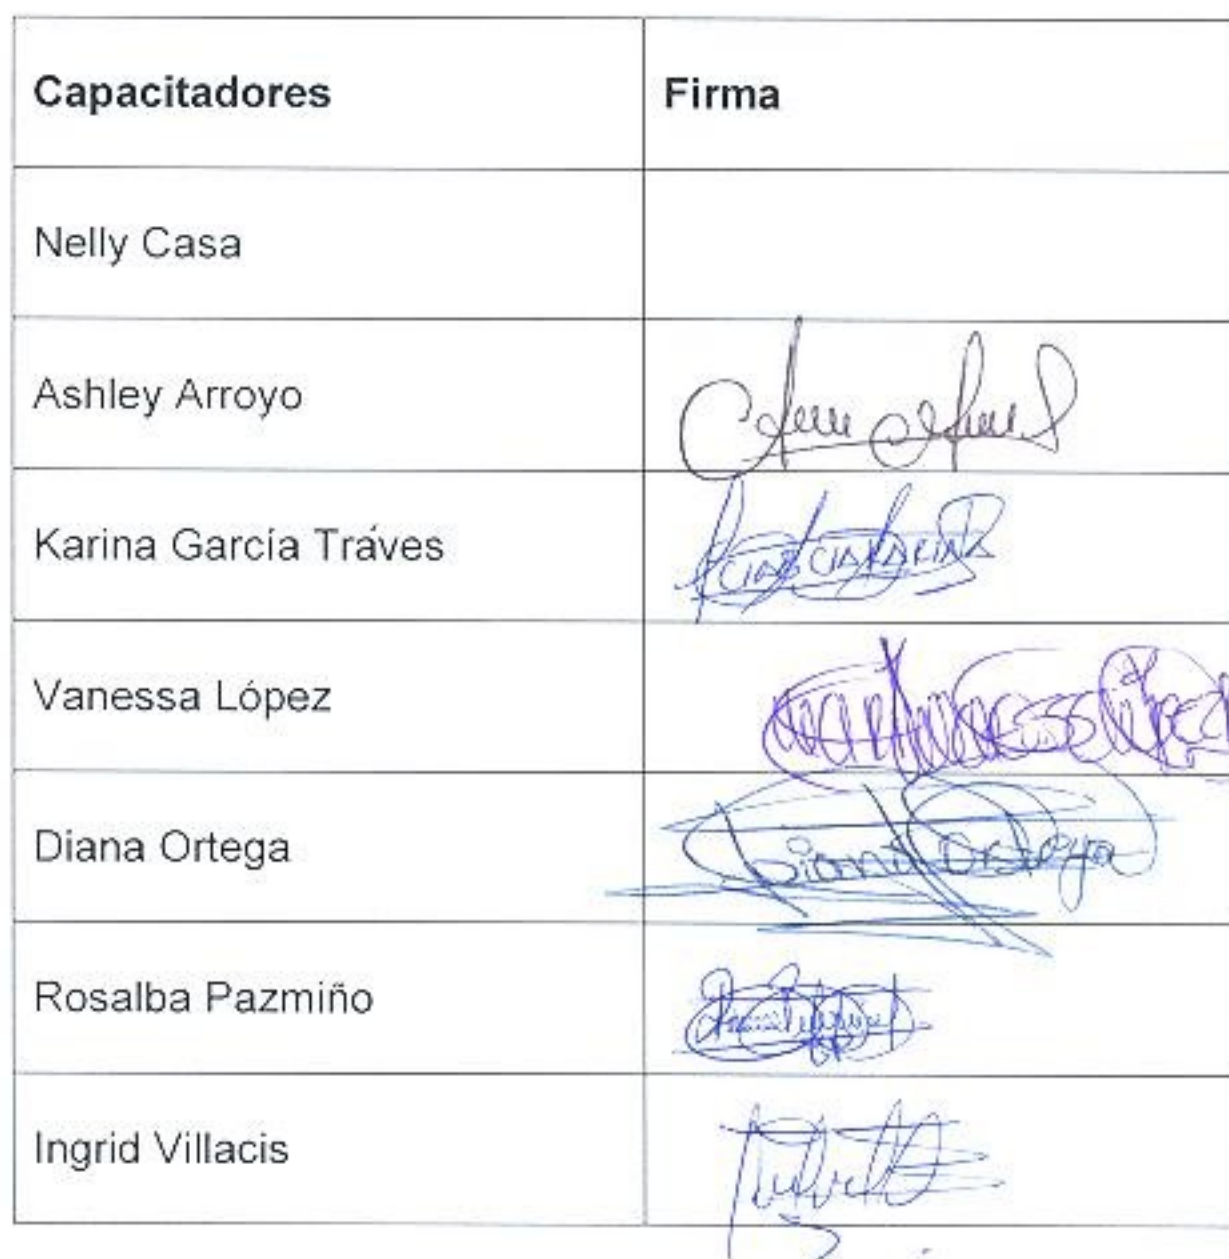 Capacitadores Firma
Nelly Casa
Ashley Arroyo
Karina García Tráves
Vanessa López
Diana Ortega Diana Ortega
Rosalba Pazmiño
Ingrid Villacis